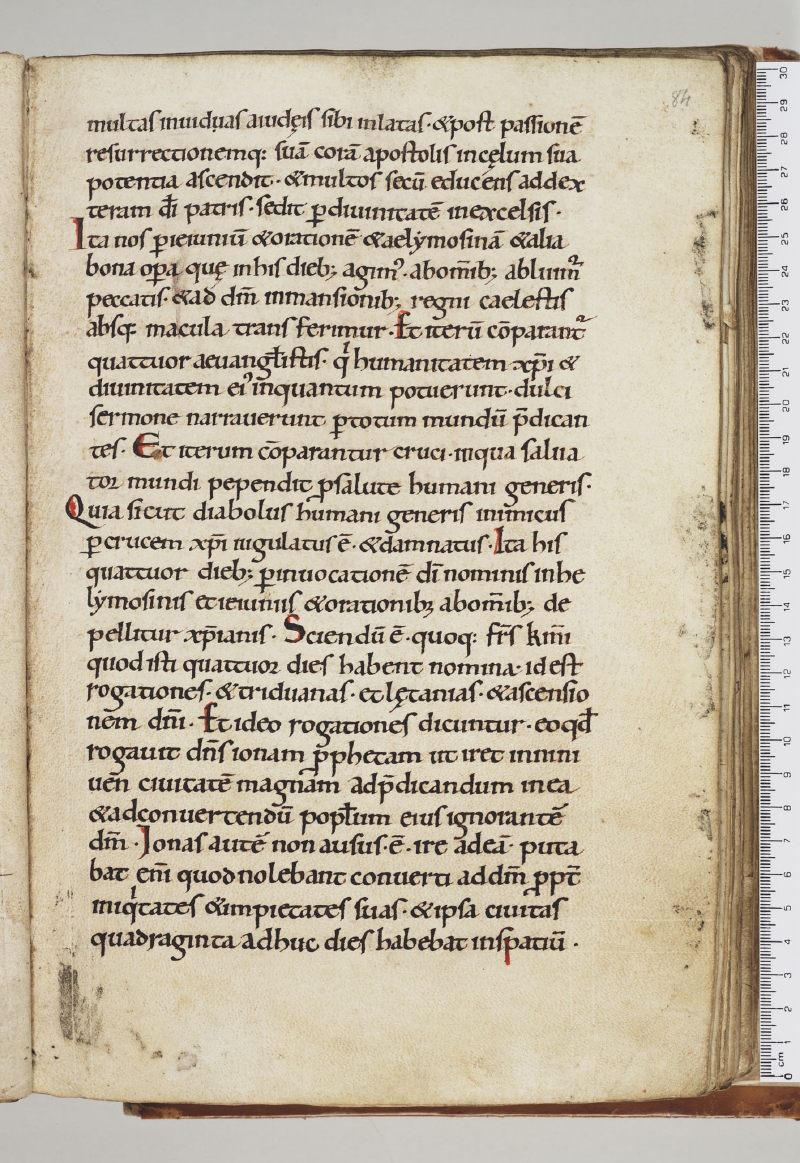 84
multas inuiduas aiudęis sibi inlatas · & post passionē
resurrectionemq: suā corā apostolis in cęlum sua
potentia ascendit · & multos secū educens ad dex
teram dī patris · sedit p̱ diuinitatē in excelsis ·
Ita nos p̱ ieiuniū & orationē & aelẏmosinā & alia
bona opa quę in his dieb; agim᾿ · ab om̄ib; abluim̄
peccatis · & ad dm̄ in mansionib; regni caelestis
absq; macula transferimur · Et iterū cōparant᾿
quattuor aeuangłistis · qͥ humanitatem xp̄i &
diuinitatem ei᾿ inquantum potuerunt · dulci
sermone narrauerunt p̱ totum mundū p̄dican
tes · Et iterum cōparantur cruci · in qua salua
tor mundi pependit p̱ salute humani generis ·
Quia sicut diabolus humani generis inimicus
p̱ crucem xp̄i iugulatus ē · & damnatus · Ita his
quattuor dieb; p̱ inuocationē dī nominis in he
lẏmosinis et ieiuniis & orationib; ab om̄ib; de
pellitur xp̄ianis · Sciendū ē · quoq: fr̄s km̄i
quod isti quattuor dies habent nomina · id est
rogationes · & triduanas · et lętanias · & ascensio
nem dn̄i · Et ideo rogationes dicuntur · eo qd̄
rogauit dn̄s ionam p̱phetam ut iret in nini
uen ciuitatē magnam ad p̄dicandum in ea
& ad conuertendū popłum eius ignorantē
dm̄ · Jonas autē non ausus · ē · ire ad eā · puta
bat eni̅ quod nolebant conuerti ad dm̄ p̱pt̄
iniqͥtates & impietates suas · & ipsa ciuitas
quadraginta adhuc dies habebat in spatiū ·